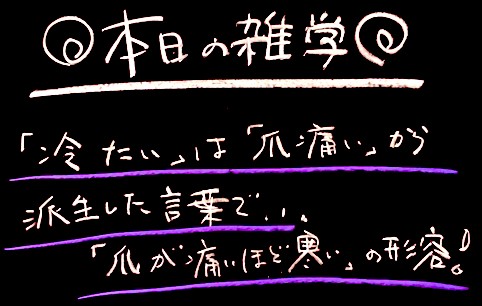 本日の雑学
「冷たい」は「爪痛い」から
派生した言葉で...
「爪が痛いほど寒い」の形容!